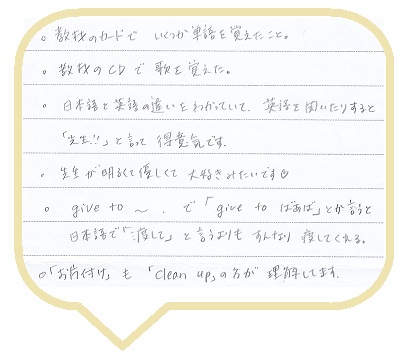 。教材のカードで いくつか単語を覚えたこと。
。教材のCDで歌を覚えた。
。日本語と英語の違いをわかっていて、英語を聞いたりすると
「先生!!」と言って得意気です。
。先生が明るくて優しくて大好きみたいです♡
。give to 〜. で「give to ばあば」とか言うと
日本語で「渡して」と言うよりもすんなり渡してくれる。
。「お片付け」も「Clean up」の方が理解してます。